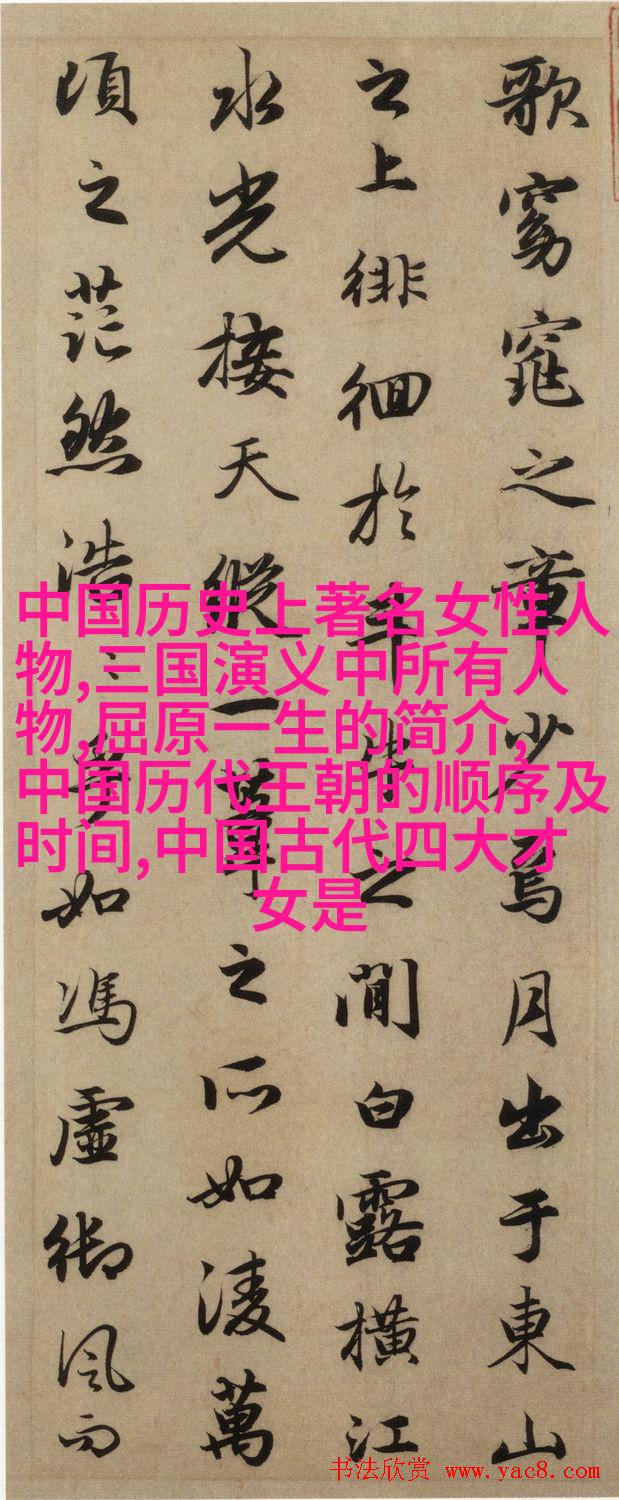 歌窈窕之章少焉月出于東山
之上徘徊於斗牛之間白露橫江
水光接天縱一葦之所如淩萬
頃之茫然浩〻乎如馮虛御風而
中国历史上著名女性人
物,三国演义中所有人
物,屈原一生的简介,
中国历代王朝的顺序及
时间,中国古代四大才
女是
书法欣赏 www.yac8.com